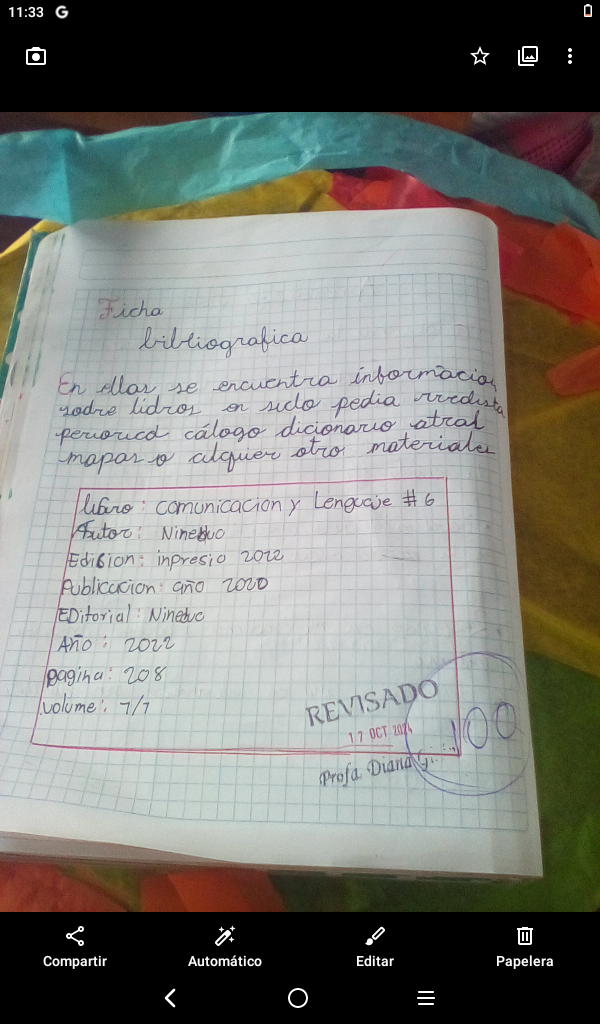 11:33 G
Ficha
bibliografica
En ellas se encuentra informacion
sodre lidros en siclo pedia rredista
periorico cálogo dicionario atral
mapas o cilquier otro materiales
libro : comunicacion y Lenguaje # 6
Autor : Nineduc
Edision : inpresio 2022
Publicacion : año 2020
EDitorial : Nineduc
Año : 2022
pagina : 208
volume : 7/7
REVISADO
17 OCT 2024
Profa Diana G.
100
Compartir Automático Editar Papelera